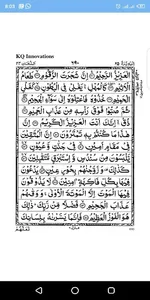 8:03
KQ Innovations
الْعَزِيْزُ الرَّحِيْمُ اِنَّ شَجَرَتَ الزَّقُّوْمِ طَعَامُ
الْاَثِيْمِ كَالْمُهْلِ يَغْلِيْ فِي الْبُطُوْنِ كَغَلْيِ
الْحَمِيْمِ خُذُوْهُ فَاعْتِلُوْهُ اِلٰى سَوَآءِ الْجَحِيْمِ
ثُمَّ صُبُّوْا فَوْقَ رَاْسِهٖ مِنْ عَذَابِ الْحَمِيْمِ
ذُقْ اِنَّكَ اَنْتَ الْعَزِيْزُ الْكَرِيْمُ اِنَّ
هٰذَا مَا كُنْتُمْ بِهٖ تَمْتَرُوْنَ اِنَّ الْمُتَّقِيْنَ
فِيْ مَقَامٍ اَمِيْنٍ فِيْ جَنّٰتٍ وَّعُيُوْنٍ
يَّلْبَسُوْنَ مِنْ سُنْدُسٍ وَّاِسْتَبْرَقٍ مُّتَقٰبِلِيْنَ
كَذٰلِكَ وَزَوَّجْنٰهُمْ بِحُوْرٍ عِيْنٍ يَدْعُوْنَ
فِيْهَا بِكُلِّ فَاكِهَةٍ اٰمِنِيْنَ لَا يَذُوْقُوْنَ
فِيْهَا الْمَوْتَ اِلَّا الْمَوْتَةَ الْاُوْلٰى وَوَقٰهُمْ
عَذَابَ الْجَحِيْمِ فَضْلًا مِّنْ رَّبِّكَ ذٰلِكَ
هُوَ الْفَوْزُ الْعَظِيْمُ فَاِنَّمَا يَسَّرْنٰهُ بِلِسَانِكَ